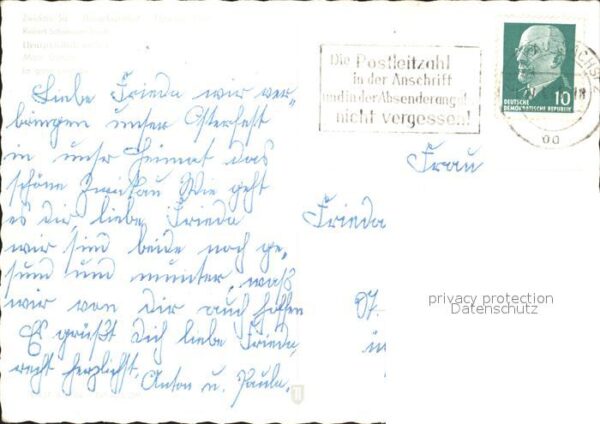 Zwickau Sa.
Robert Schumann
Die Postleitzahl
in der Anschrift
und in der Absenderangabe
nicht vergessen!
DEUTSCHE
DEMOKRATISCHE REPUBLIK 10
Liebe Frieda wir ver-
bringen unser Osterfest
in unser Heimat das
schöne Zwickau Wie geht
es dir, liebe Frieda
wir sind beide noch ge-
sund und munter, was
wir von dir auch hoffen
Es grüßt Dich liebe Frieda,
recht herzlichst.
Anton u. Paula.
Frau
Frieda
97.
in
privacy protection
Datenschutz